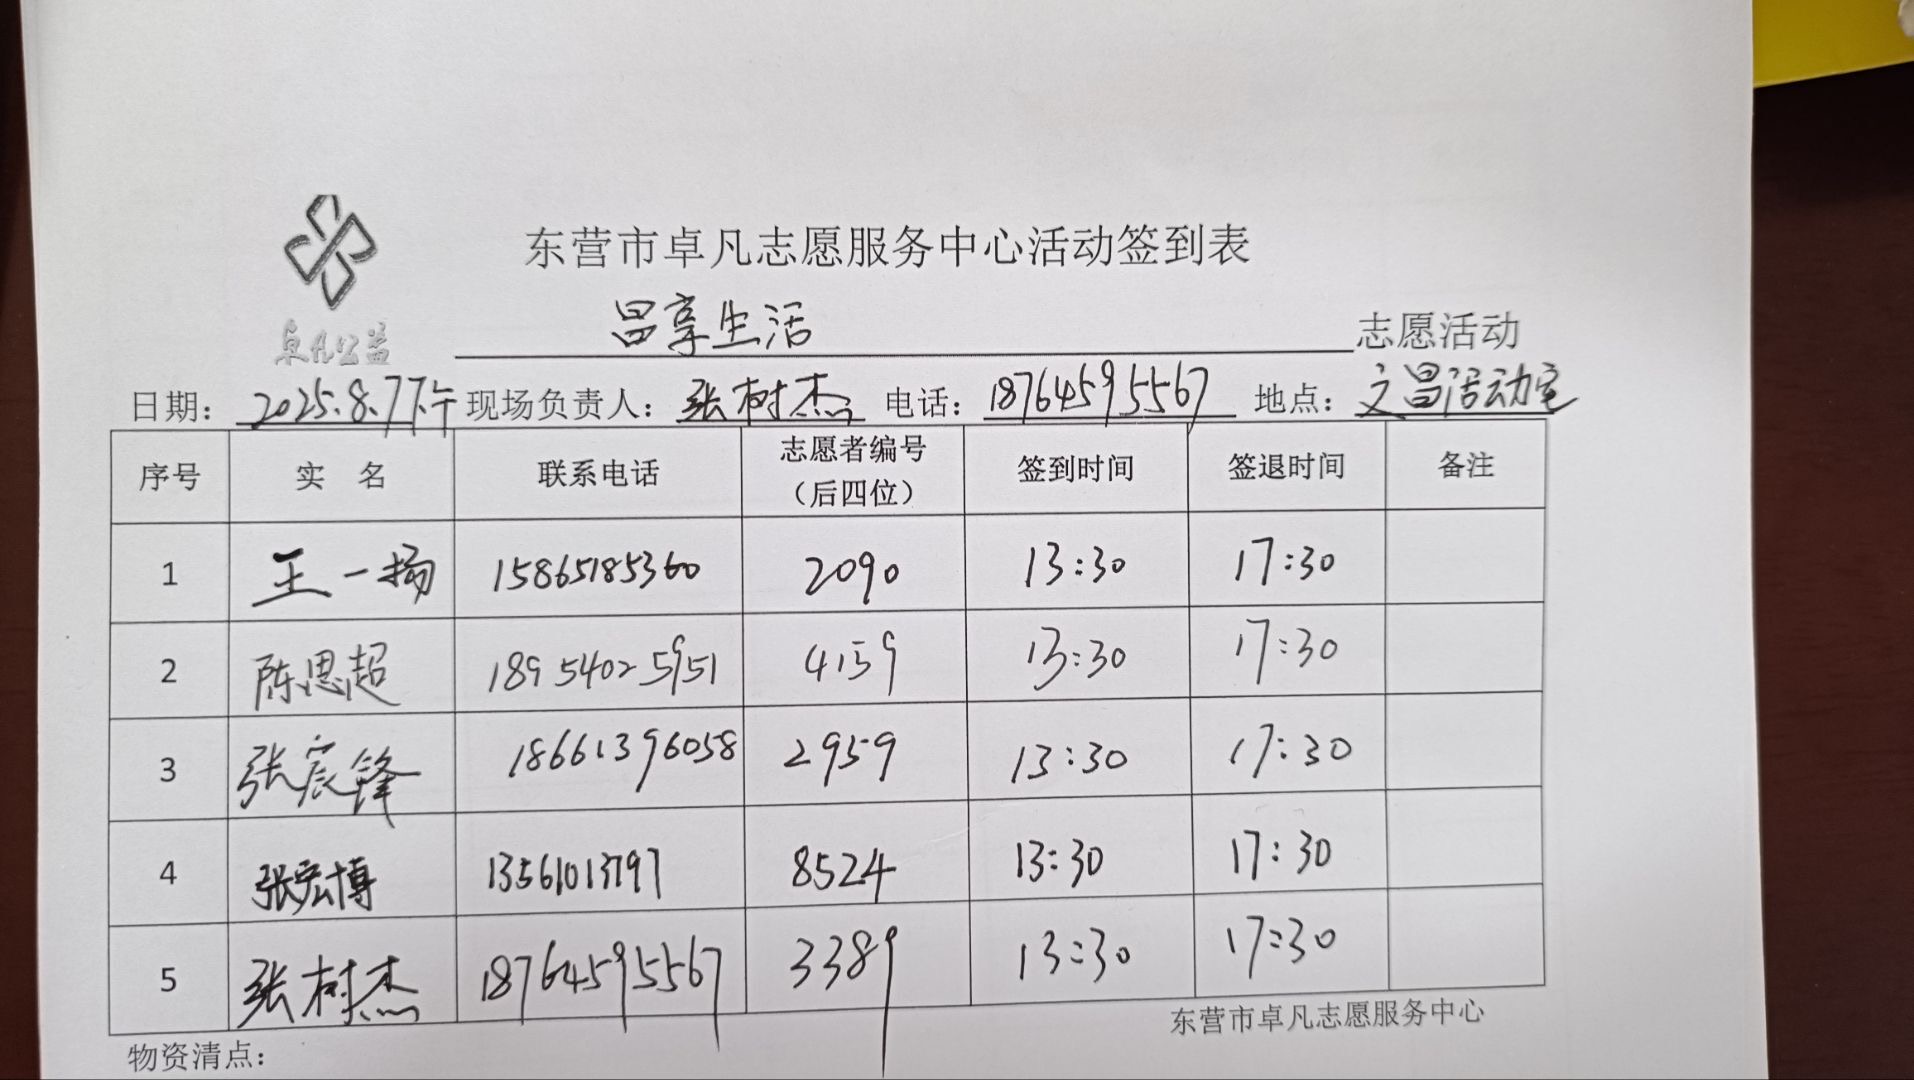 东营市卓凡志愿服务中心活动签到表
卓凡公益
昌享生活 志愿活动
日期: 2025.8.7下午 现场负责人: 张树杰 电话: 18764595567 地点: 文昌活动室
序号 实 名 联系电话 志愿者编号（后四位） 签到时间 签退时间 备注
1 王一扬 15865185360 2090 13:30 17:30
2 陈思超 18954025951 4159 13:30 17:30
3 张宸锋 18661396058 2959 13:30 17:30
4 张宏博 13561013797 8524 13:30 17:30
5 张树杰 18764595567 3389 13:30 17:30
东营市卓凡志愿服务中心
物资清点: